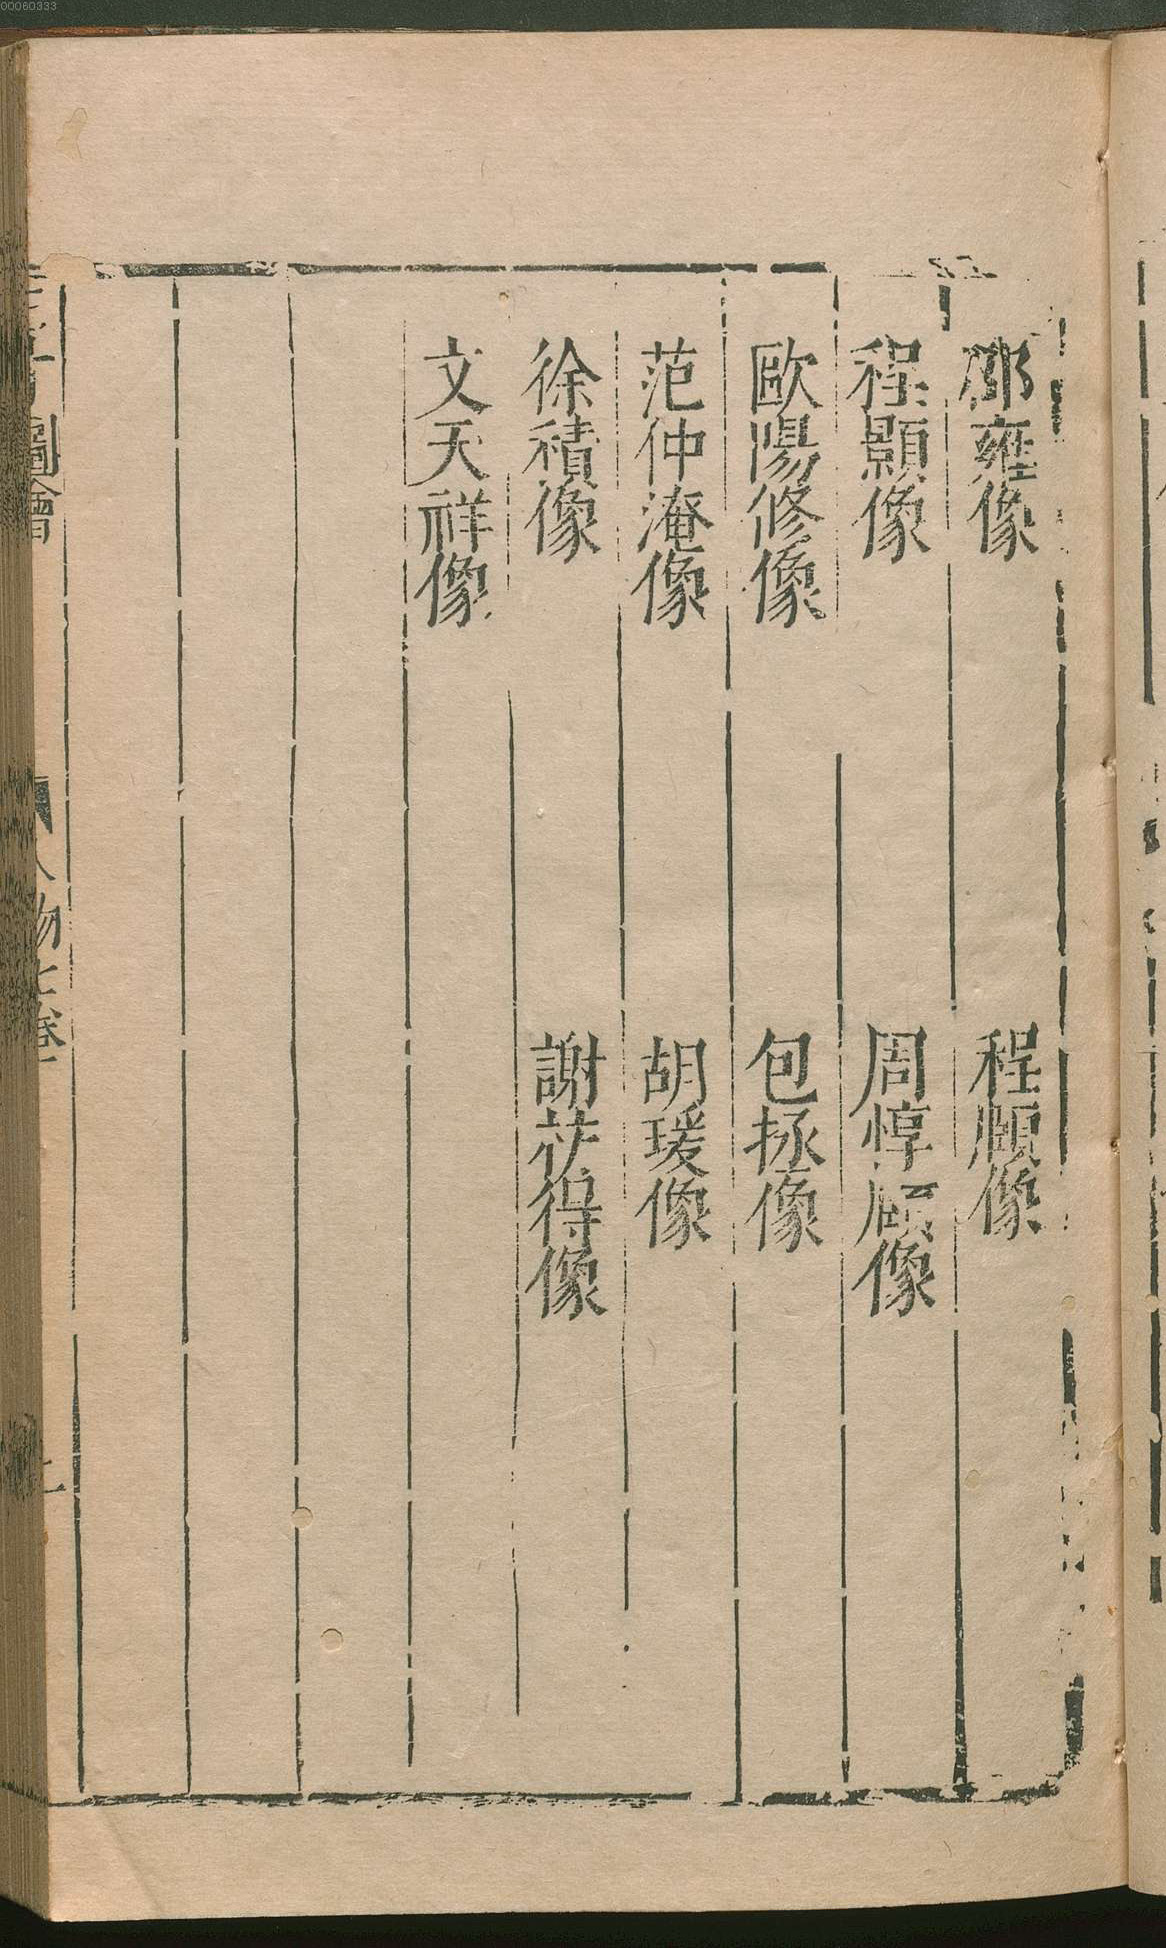 00060333
邵雍像
程頤像
程顥像
周惇頤像
歐陽修像
包拯像
范仲淹像
胡瑗像
徐積像
謝茾得像
文天祥像
圖會
人物七卷
二